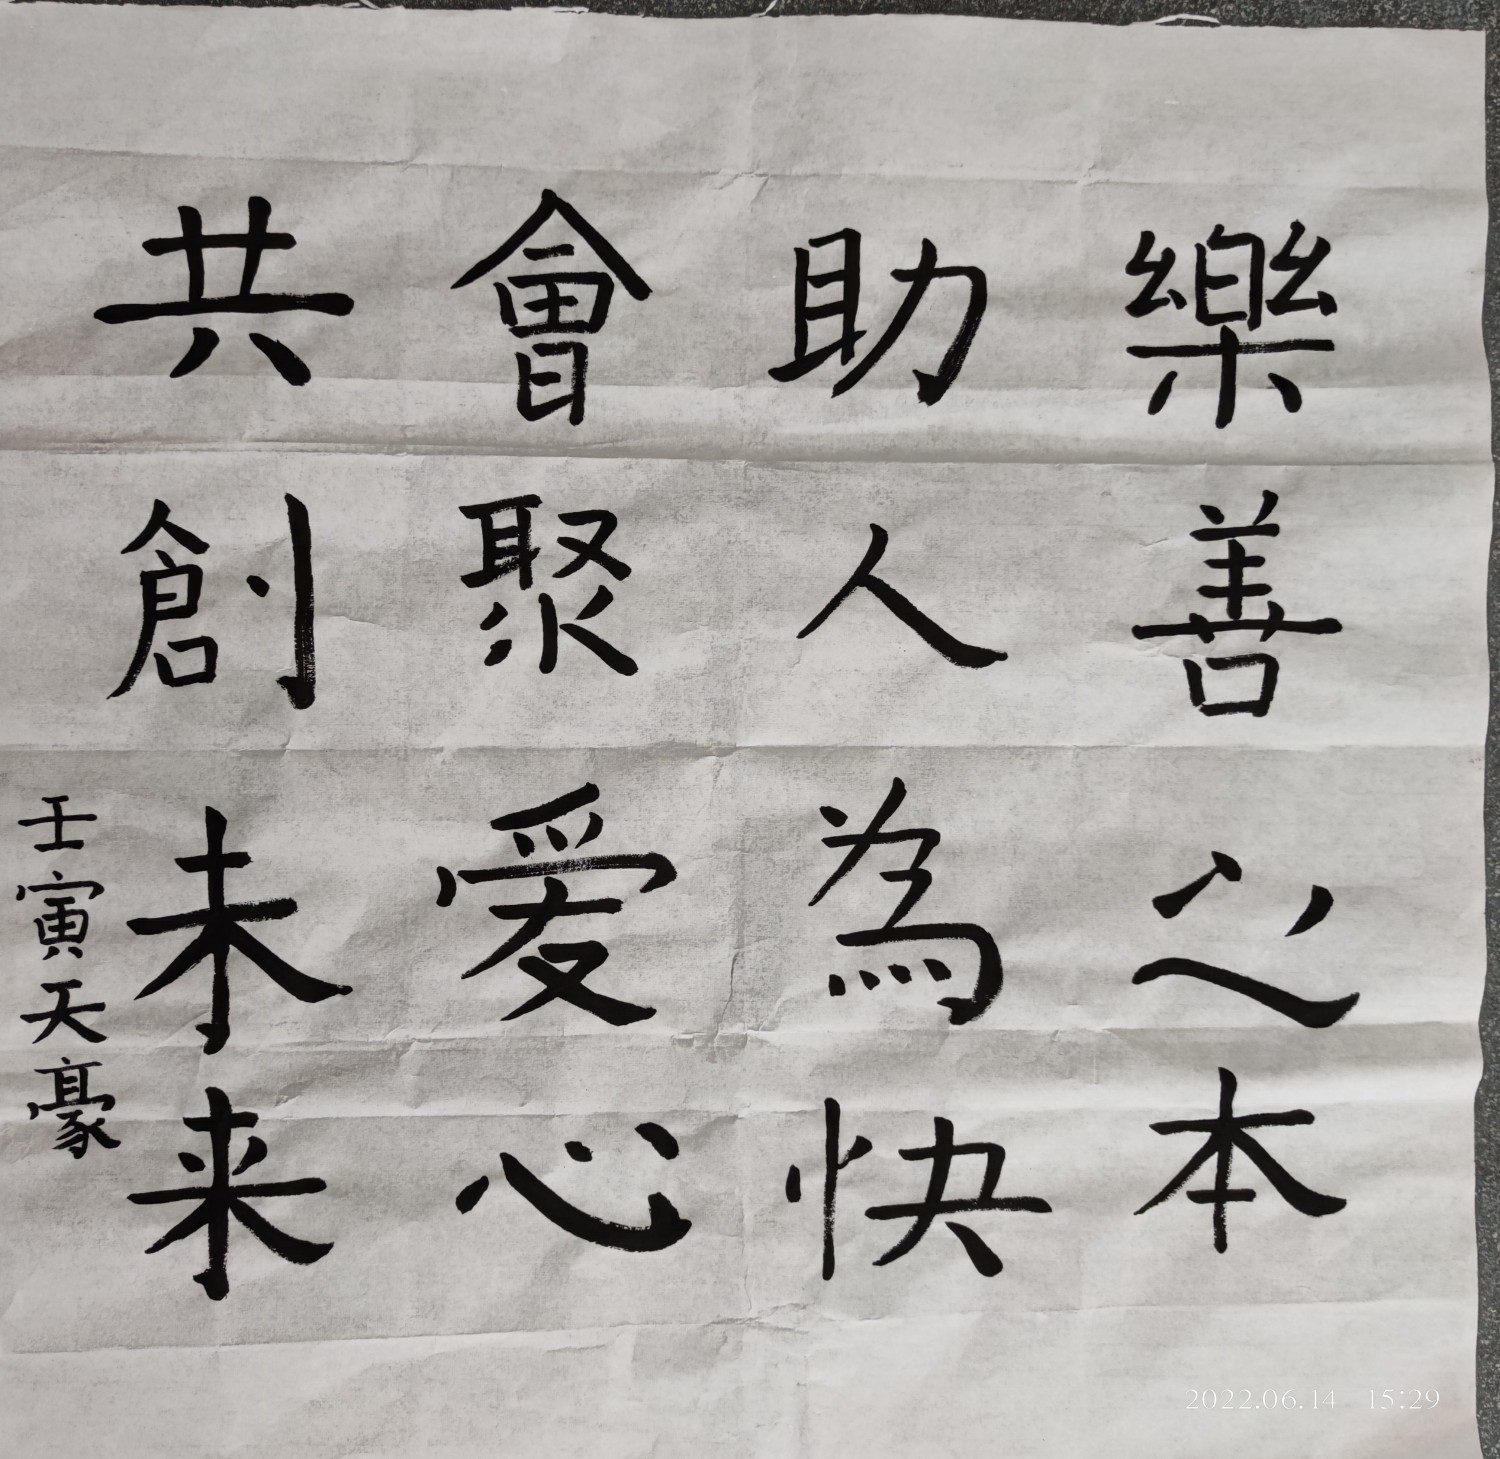 樂善之本
助人為快
會聚爱心
共創未来
壬寅天豪
2022.06.14 15:29